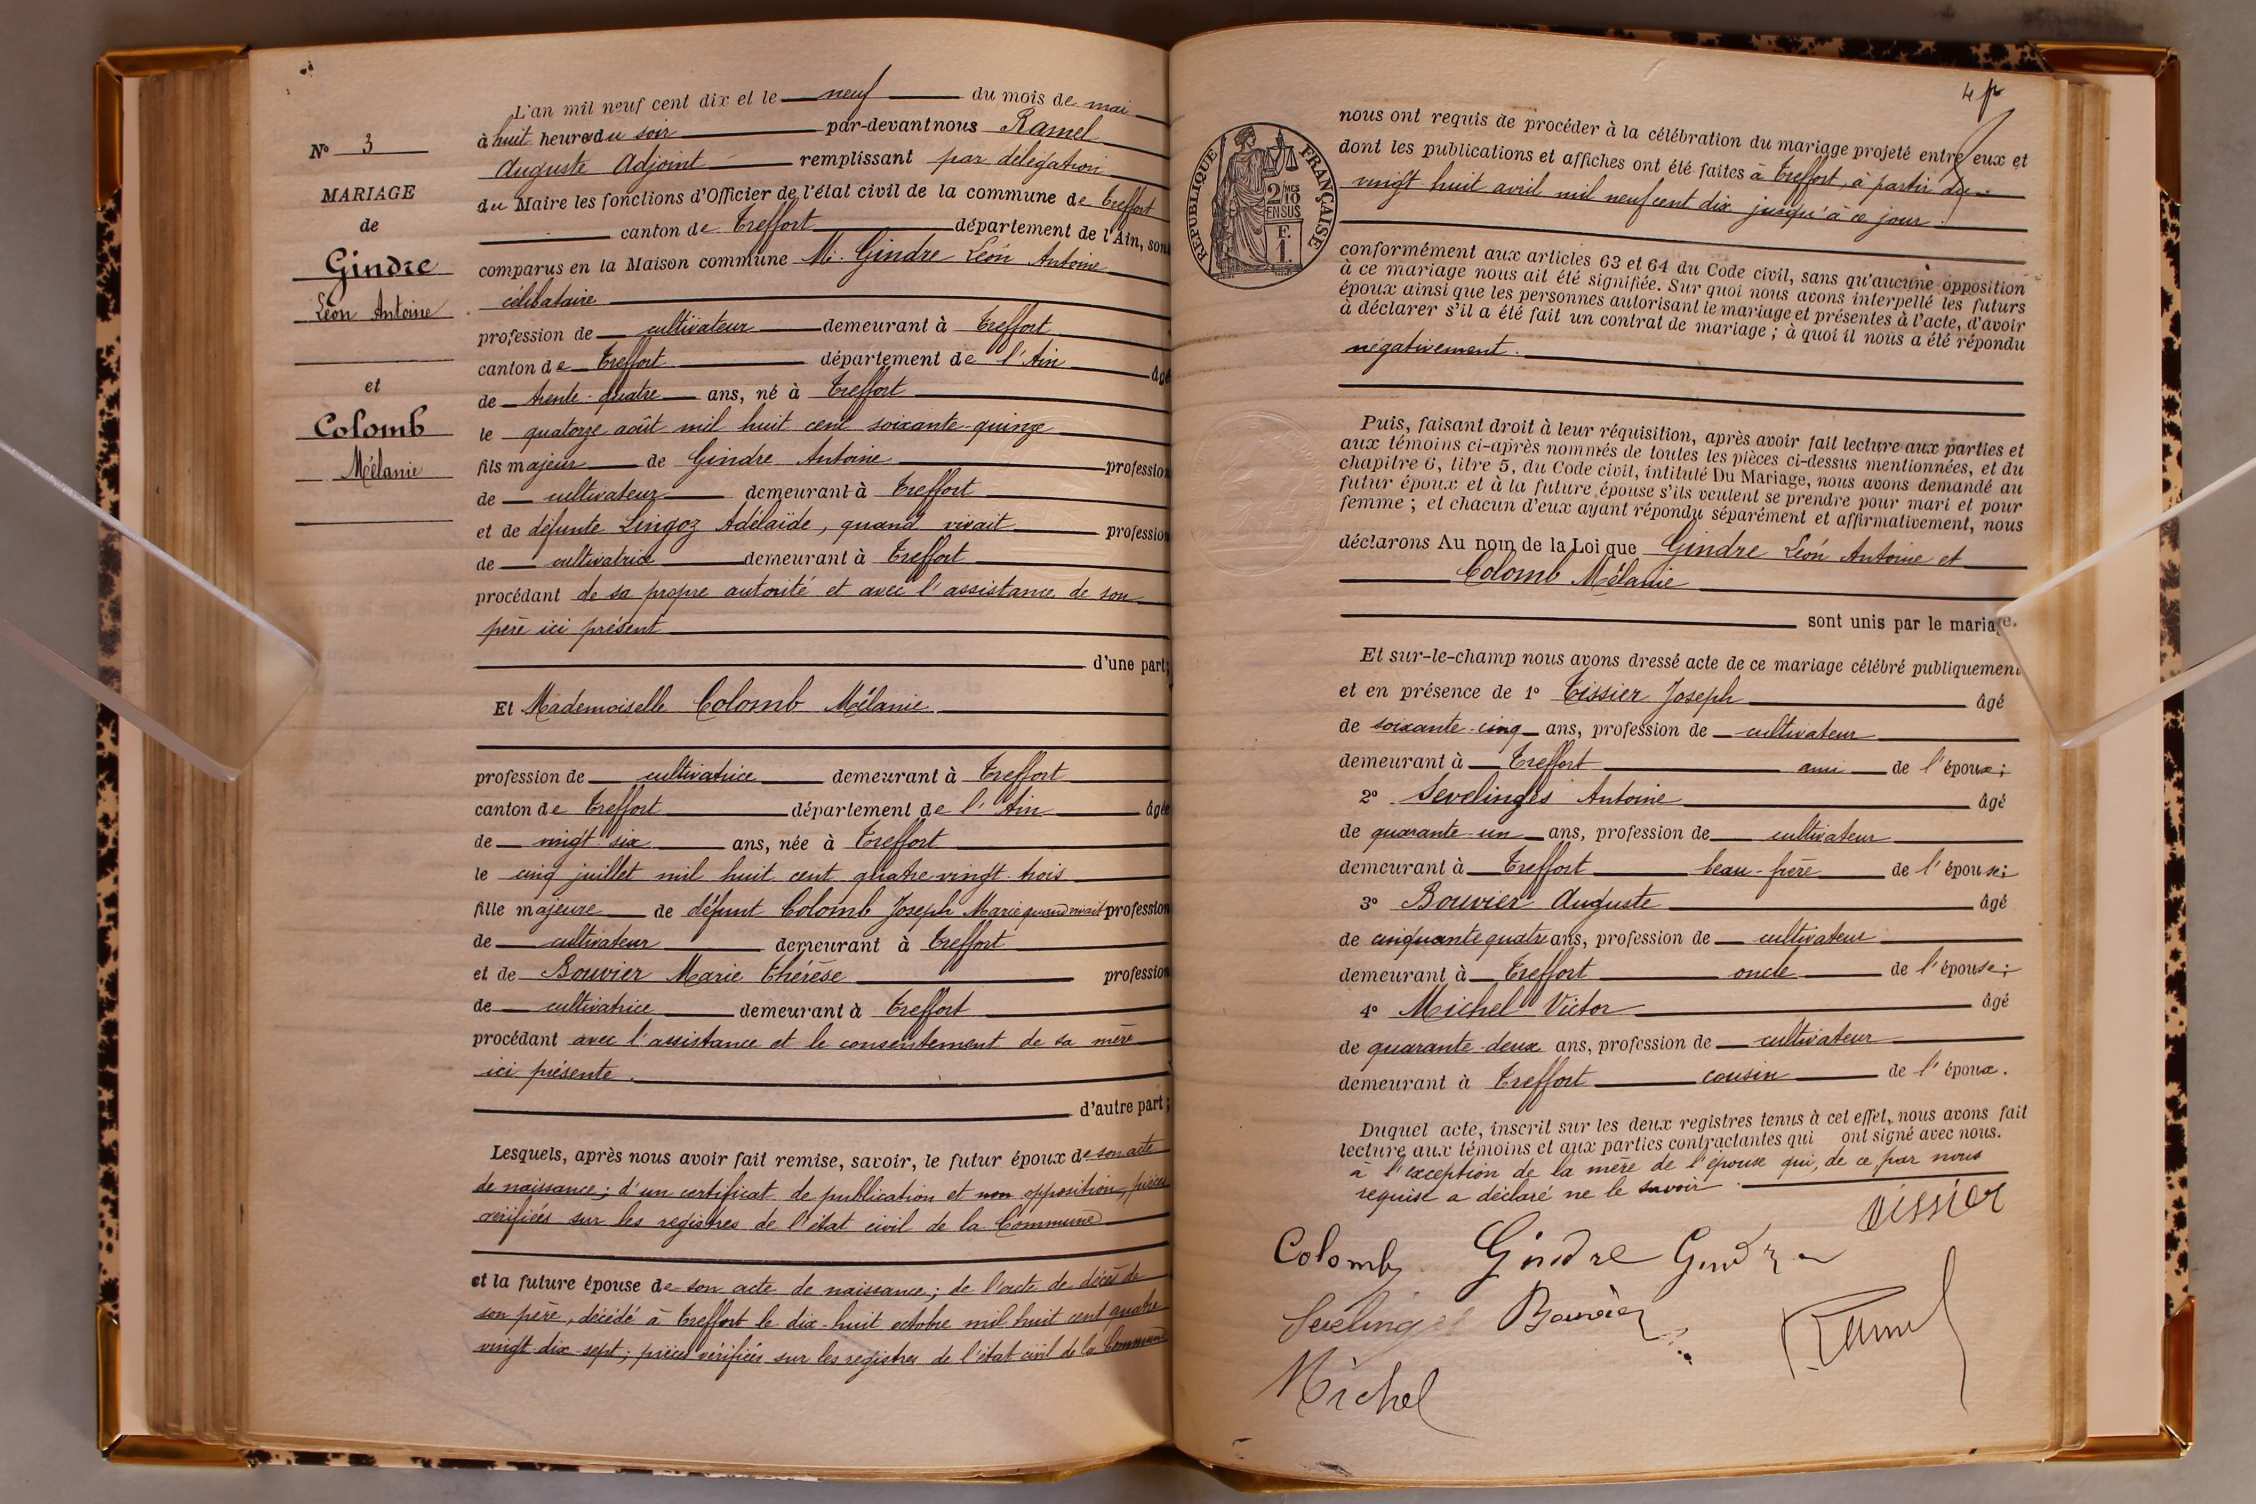 L'an mil neuf cent dix et le neuf du mois de mai
à huit heures du soir par-devant nous Ramel
Auguste Adjoint remplissant par délégation
du Maire les fonctions d'Officier de l'état civil de la commune de Treffort
canton de Treffort département de l'Ain, sont
comparus en la Maison commune M. Gindre Léon Antoine
célibataire
profession de cultivateur demeurant à Treffort
canton de Treffort département de l'Ain âgé
de trente-quatre ans, né à Treffort
le quatorze août mil huit cent soixante-quinze
fils majeur de Gindre Antoine profession
de cultivateur demeurant à Treffort
et de défunte Lingoz Adélaïde, quand vivait profession
de cultivatrice demeurant à Treffort
procédant de sa propre autorité et avec l'assistance de son
père ici présent
d'une part;
Et Mademoiselle Colomb Mélanie
profession de cultivatrice demeurant à Treffort
canton de Treffort département de l'Ain âgée
de vingt-six ans, née à Treffort
le cinq juillet mil huit cent quatre vingt-trois
fille majeure de défunt Colomb Joseph Marie quand vivait profession
de cultivateur demeurant à Treffort
et de Bouvier Marie Thérèse profession
de cultivatrice demeurant à Treffort
procédant avec l'assistance et le consentement de sa mère
ici présente.
d'autre part;
Lesquels, après nous avoir fait remise, savoir, le futur époux de son acte
de naissance; d'un certificat de publication et non opposition, pièces
vérifiées sur les registres de l'état civil de la Commune
et la future épouse de son acte de naissance; de l'acte de décès de
son père, décédé à Treffort le dix-huit octobre mil huit cent quatre
vingt-dix-sept; pièces vérifiées sur les registres de l'état civil de la Commune
N° 3
MARIAGE
de
Gindre
Léon Antoine
et
Colomb
Mélanie
4
RÉPUBLIQUE FRANÇAISE
2/10 MES
EN SUS
F.
1.
nous ont requis de procéder à la célébration du mariage projeté entre eux et
dont les publications et affiches ont été faites à Treffort, à partir du
vingt huit avril mil neuf cent dix jusqu'à ce jour.
conformément aux articles 63 et 64 du Code civil, sans qu'aucune opposition
à ce mariage nous ait été signifiée. Sur quoi nous avons interpellé les futurs
époux ainsi que les personnes autorisant le mariage et présentes à l'acte, d'avoir
à déclarer s'il a été fait un contrat de mariage; à quoi il nous a été répondu
négativement.
Puis, faisant droit à leur réquisition, après avoir fait lecture aux parties et
aux témoins ci-après nommés de toutes les pièces ci-dessus mentionnées, et du
chapitre 6, titre 5, du Code civil, intitulé Du Mariage, nous avons demandé au
futur époux et à la future épouse s'ils veulent se prendre pour mari et pour
femme; et chacun d'eux ayant répondu séparément et affirmativement, nous
déclarons Au nom de la Loi que Gindre Léon Antoine et
Colomb Mélanie
sont unis par le mariage.
Et sur-le-champ nous avons dressé acte de ce mariage célébré publiquement
et en présence de 1° Tissier Joseph âgé
de soixante-cinq ans, profession de cultivateur
demeurant à Treffort ami de l'époux;
2° Sevelinges Antoine âgé
de quarante-un ans, profession de cultivateur
demeurant à Treffort beau-frère de l'épouse;
3° Bouvier Auguste âgé
de cinquante quatre ans, profession de cultivateur
demeurant à Treffort oncle de l'épouse;
4° Michel Victor âgé
de quarante-deux ans, profession de cultivateur
demeurant à Treffort cousin de l'époux.
Duquel acte, inscrit sur les deux registres tenus à cet effet, nous avons fait
lecture aux témoins et aux parties contractantes qui ont signé avec nous.
à l'exception de la mère de l'épouse qui, de ce par nous
requise a déclaré ne le savoir.
Tissier
Colomb Gindre Gindre
Sevelinges Bouvier Ramel
Michel